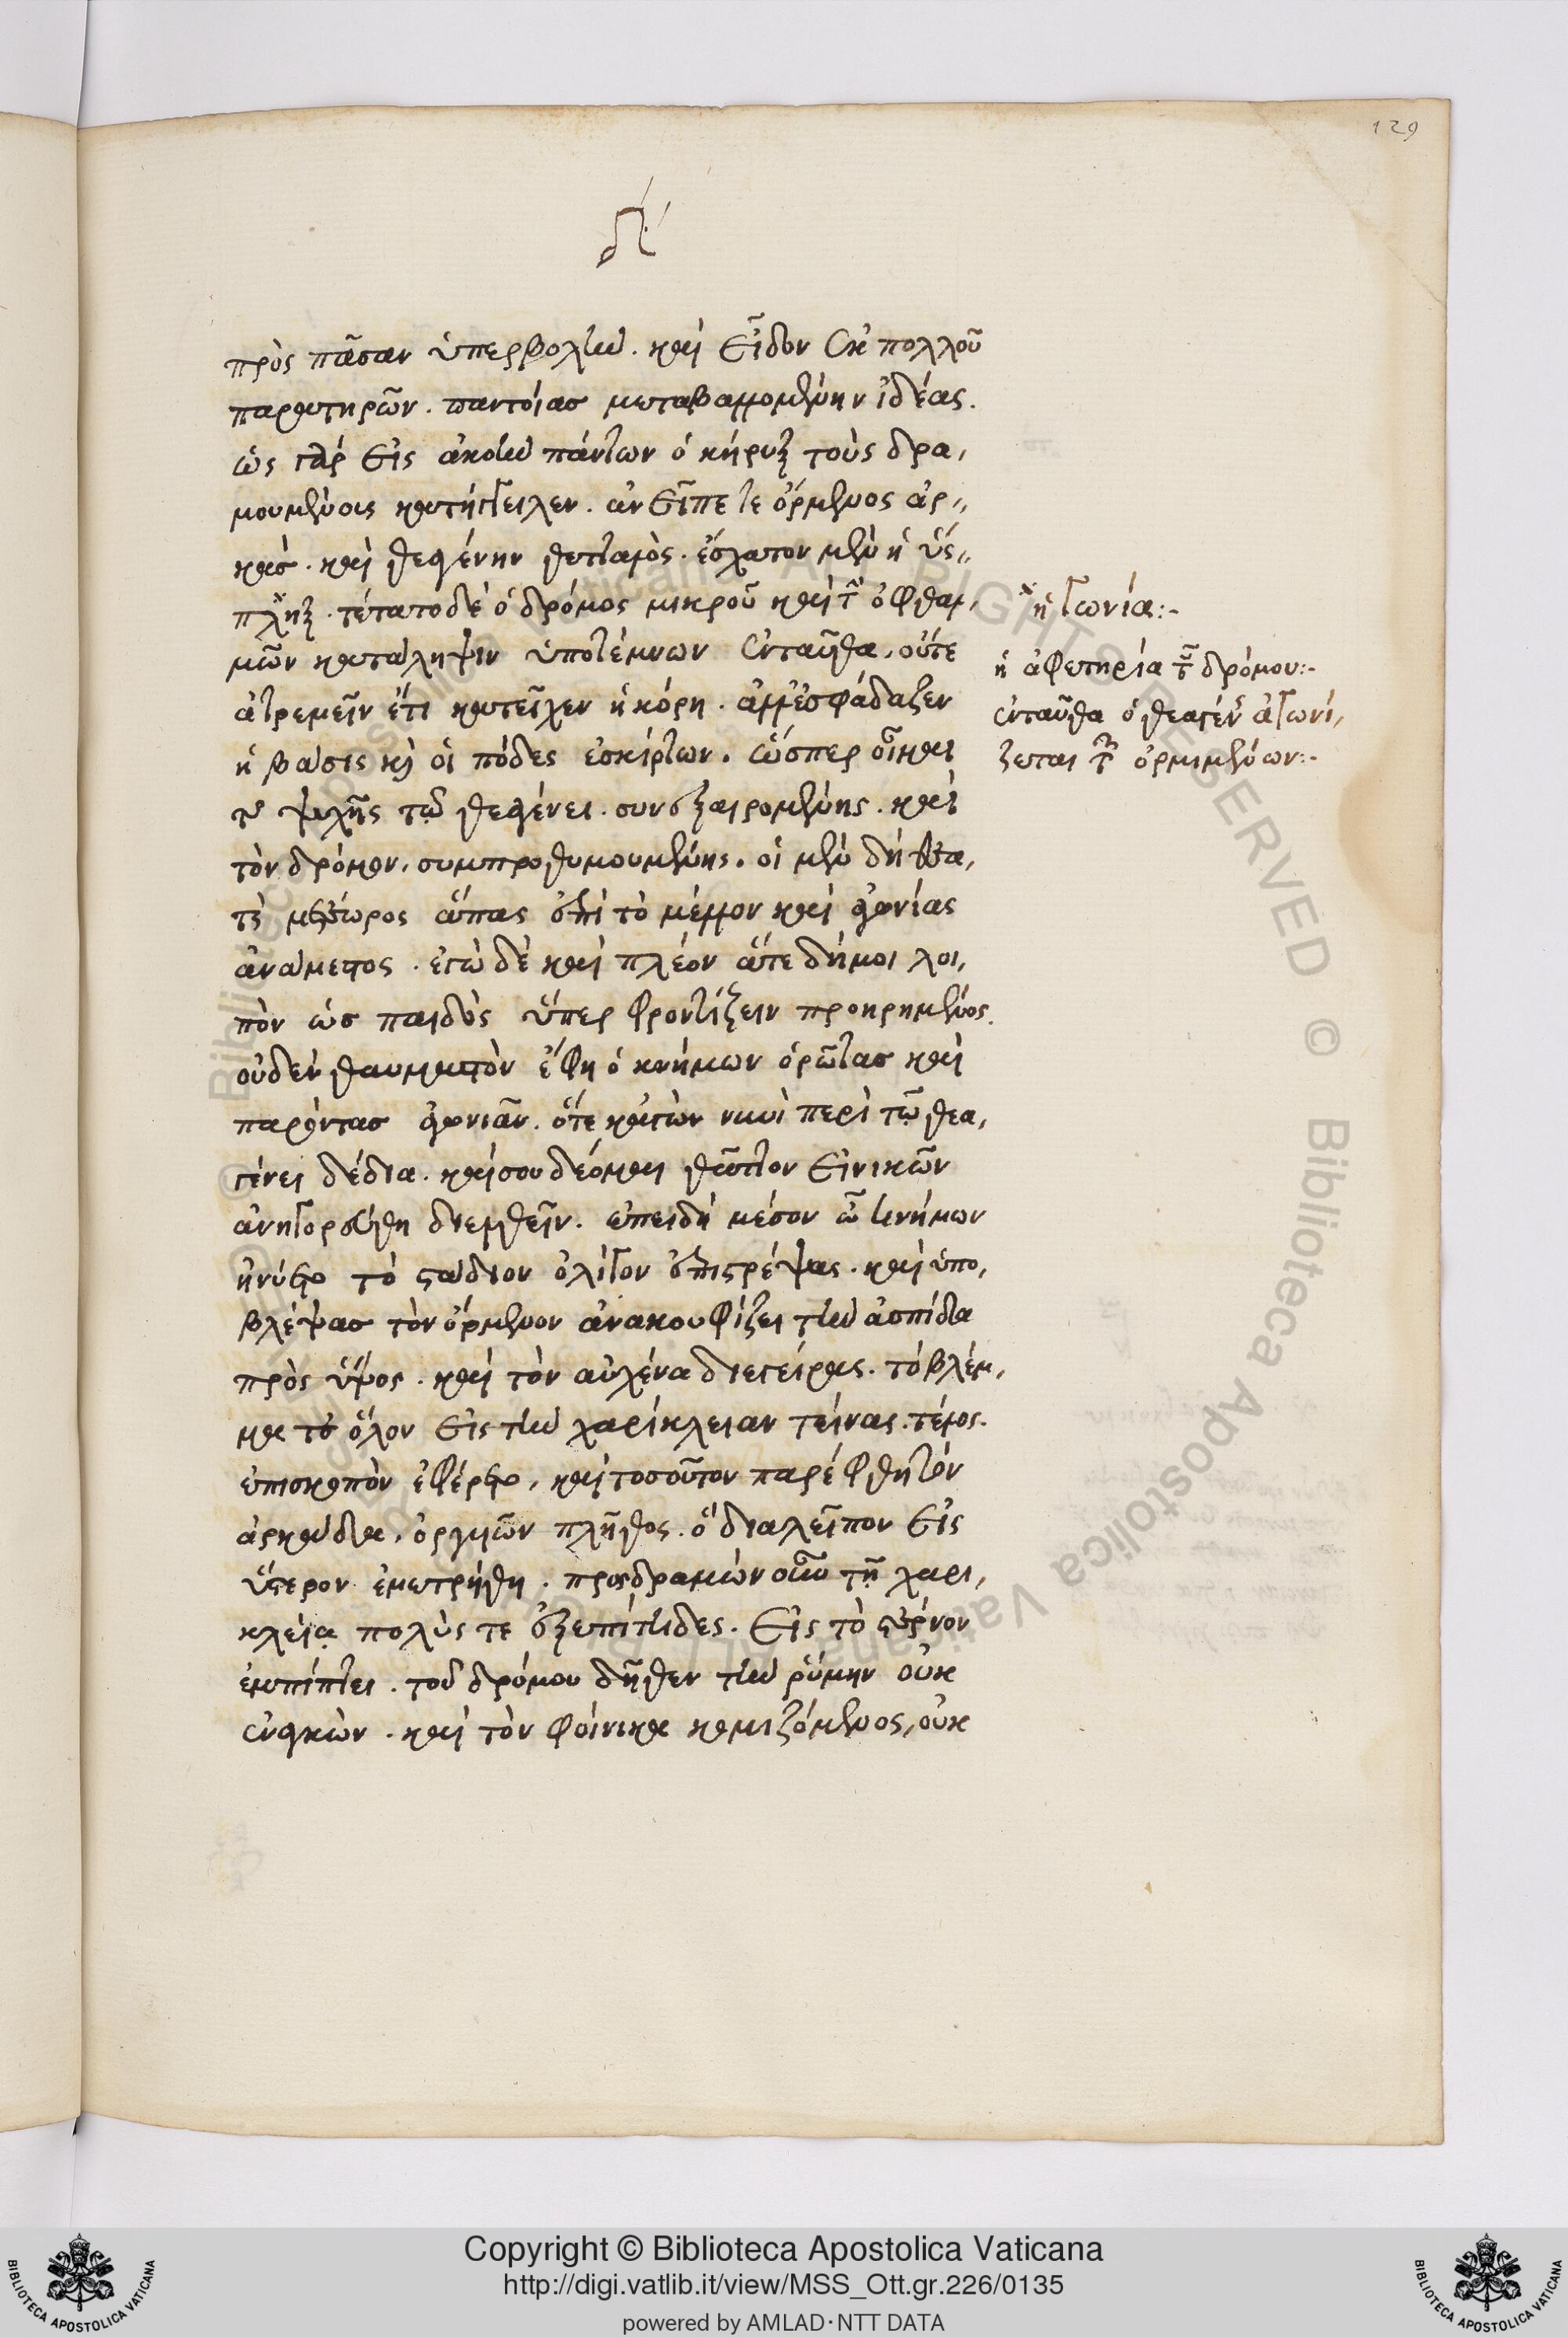 129
πʹ
πρὸς πᾶσαν ὑπερβολὴν. καὶ εἶδον ἐκ πολλοῦ
παρατηρῶν. παντοίας μεταβαλλομένην ἰδέας.
ὡς γὰρ εἰς ἀκοὴν πάντων ὁ κήρυξ τοὺς δρα,
μουμένοις κατήγγειλεν. ἀνεῖπέ τε ὄρμενος ἀρ,,
κὰς. καὶ θεαγένην θετταλὸς. ἔσχατον μὲν ἡ ὕς,,
πληξ. τέτατο δὲ ὁ δρόμος μικροῦ καὶ τ̑ ὀφθαλ,
μῶν κατάληψιν ὑποτέμνων ἐνταῦθα, οὔτε
ἀτρεμεῖν ἔτι κατεῖχεν ἡ κόρη. ἀλλ' ἐσφάδαζεν
ἡ βάσις κ) οἱ πόδες ἐσκίρτων. ὥσπερ οἶμαι
τ̑ ψυχῆς τῷ θεαγένει. συνεξαιρομένης. καὶ
τὸν δρόμον, συμπροθυμουμένης. οἱ μὲν δὴ θεα,
τὲ μετέωρος ἅπας ἐπὶ τὸ μέλλον καὶ ἀγωνίας
ἀνάμεστος. ἐγὼ δὲ καὶ πλέον ἅτε δή μοι λοι,
πὸν ὡς παιδὸς ὕπερ φροντίζειν προηρημένος.
οὐδὲν θαυμαστὸν ἔφη ὁ κνήμων ὁρῶντας καὶ
παρόντας ἀγωνιᾶν. ὅτε κἀγὼν νυνὶ περὶ τῷ θεα,
γένει δέδια. καὶ σου δέομαι θᾶττον εἰ νικῶν
ἀνηγορεύθη διελθεῖν. ἐπειδὴ μέσον ὦ κνήμων
ἠνύετο τὸ στάδιον ὀλίγον ἐπιστρέψας. καὶ ὑπο,
βλέψας τὸν ὄρμενον ἀνακουφίζει τὴν ἀσπίδα
πρὸς ὕψος. καὶ τὸν αὐχένα διεγείρας. τὸ βλέμ,
μα τὸ ὅλον εἰς τὴν χαρίκλειαν τείνας. τέλος.
ἐπισκοπὸν ἐφέρετο, καὶ τοσοῦτον παρέφθη τὸν
ἀρκάδα, ὀργυιῶν πλῆθος. ὃ διαλεῖπον εἰς
ὕστερον ἐμετρήθη. προσδραμὼν οὖν τῇ χαρι,
κλείᾳ πολύς τε ἐξεπίτηδες. εἰς τὸ στέρνον
ἐμπίπτει. τοῦ δρόμου δῆθεν τὴν ῥύμην οὐκ
ἐνεγκὼν. καὶ τὸν φοίνικα κομιζόμενος, οὐκ
ἡ γωνία:-
ἡ ἀφετηρία τ̑ δρόμου:-
ἐνταῦθα ὁ θεαγένης ἀγωνί,
ζεται τ̑ ὀρμιμένων:-
© Biblioteca Apostolica Vaticana ALL RIGHTS RESERVED © Biblioteca Apostolica Vaticana ALL RIGHTS RESERVED
BIBLIOTECA APOSTOLICA VATICANA
Copyright © Biblioteca Apostolica Vaticana
http://digi.vatlib.it/view/MSS_Ott.gr.226/0135
powered by AMLAD·NTT DATA
BIBLIOTECA APOSTOLICA VATICANA